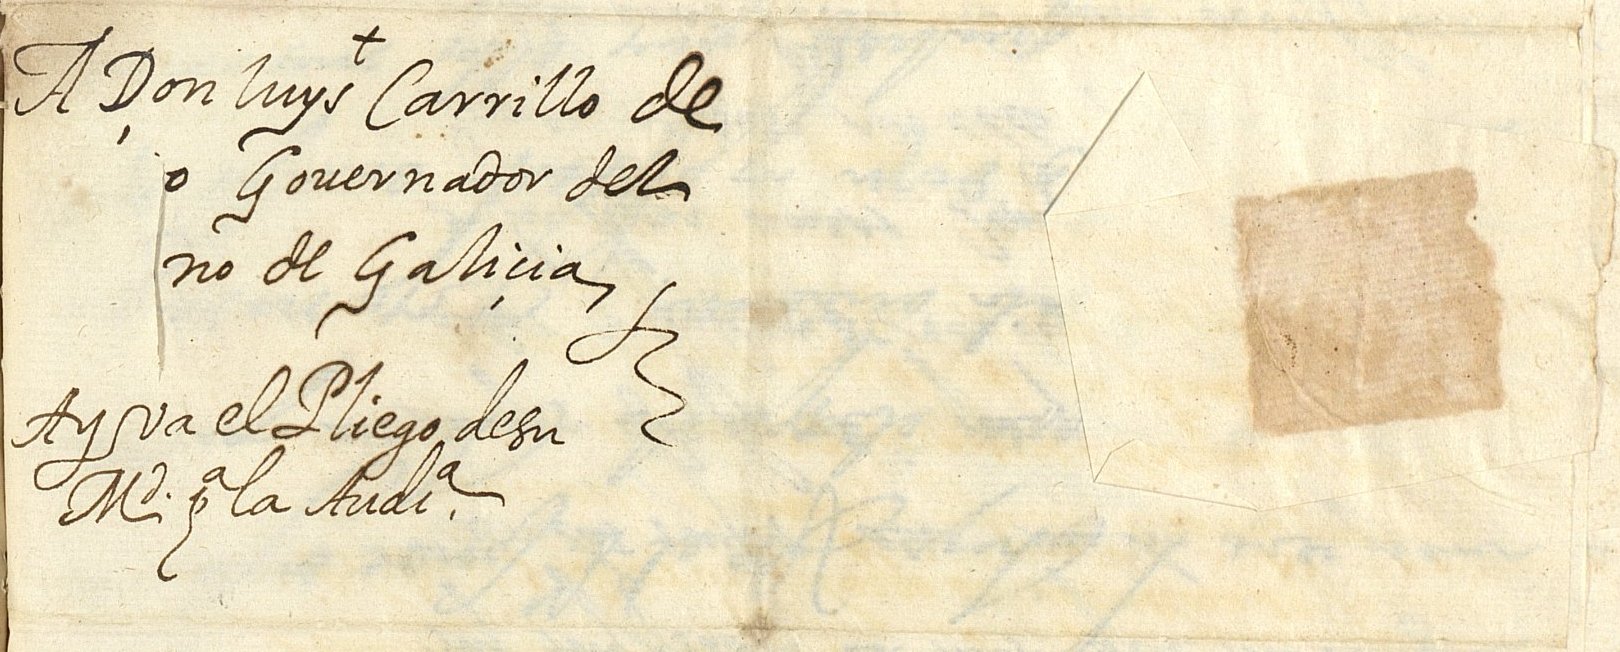 +
A Don luys Carrillo de
o Gouernador del
no de Galicia
Ay va el Pliego de su
Md. pa la Audia.